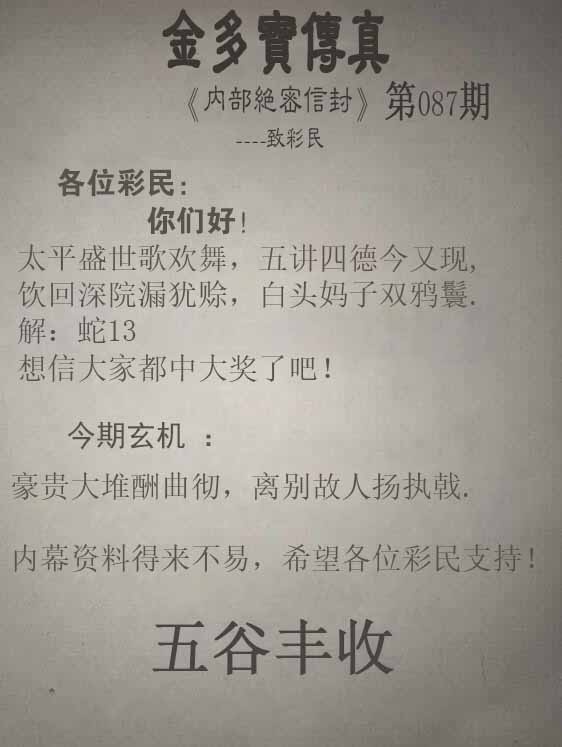 金多寳傳真
《内部絶密信封》第087期
----致彩民
各位彩民:
你们好!
太平盛世歌欢舞，五讲四德今又现,
饮回深院漏犹赊，白头妈子双鸦鬟.
解：蛇13
想信大家都中大奖了吧!
今期玄机 ：
豪贵大堆酬曲彻，离别故人扬执戟.
内幕资料得来不易，希望各位彩民支持!
五谷丰收